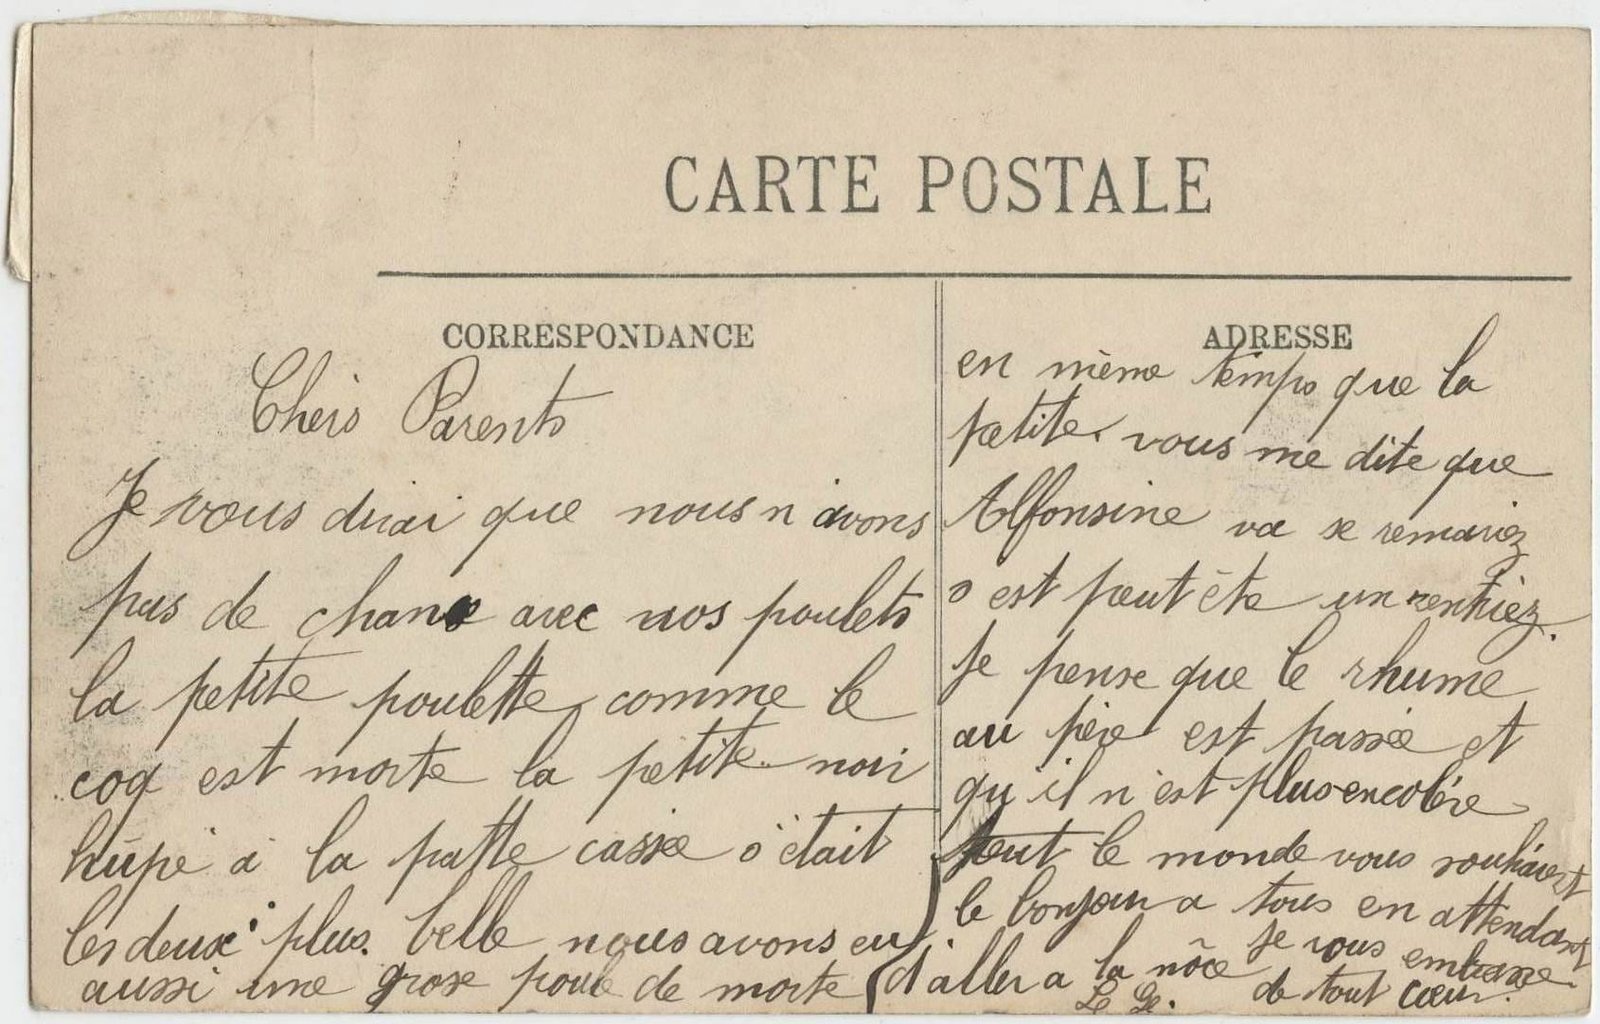 CARTE POSTALE
CORRESPONDANCE
Cheis Parents
Je vous dirai que nous n'avons
pas de chance avec nos poulets
la petite poulette comme le
coq est morte la petite noir
hupé a la patte cassée s'était
les deux plus belle nous avons eu
aussi une grose poule de morte
ADRESSE
en même temps que la
petite. vous me dite que
Alfonsine va se remariez
s est peut être un rentiez.
Je pense que le rhume
au père est passée et
qu'il n'est plus en colère
tout le monde vous souhaient
le bonjour a tous en attendant
d'aller a la nôce je vous embrasse
de tout cœur.